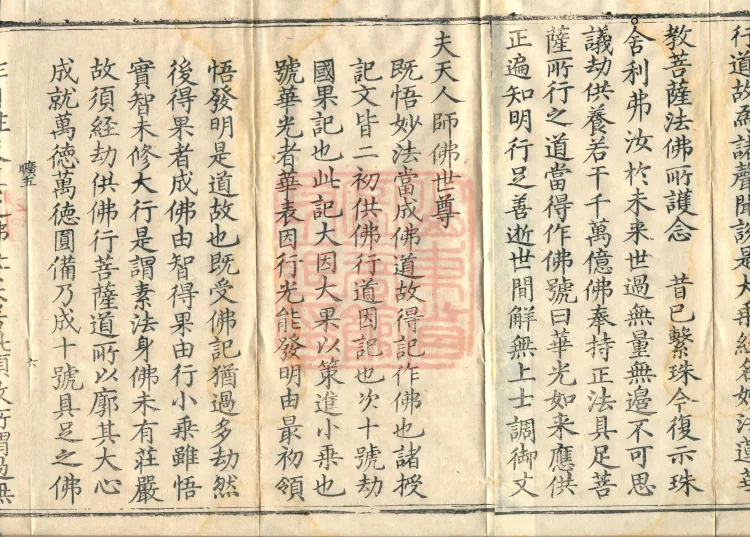 行道故為諸聲聞說是大乘經名妙法蓮華
教菩薩法佛所護念 昔已繫珠今復示珠
舍利弗汝於未來世過無量無邊不可思
議劫供養若干千萬億佛奉持正法具足菩
薩所行之道當得作佛號曰華光如来應供
正遍知明行足善逝世間解無上士調御丈
夫天人師佛世尊
既悟妙法當成佛道故得記作佛也諸授
記文皆二初供佛行道因記也次十號劫
國果記也此記大因大果以策進小乗也
號華光者華表因行光能發明由最初領
悟發明是道故也既受佛記猶過多劫然
後得果者成佛由智得果由行小乗雖悟
實智未修大行是謂素法身佛未有莊嚴
故須経劫供佛行菩薩道所以廓其大心
成就萬德萬德圓備乃成十號具足之佛
曠五
六